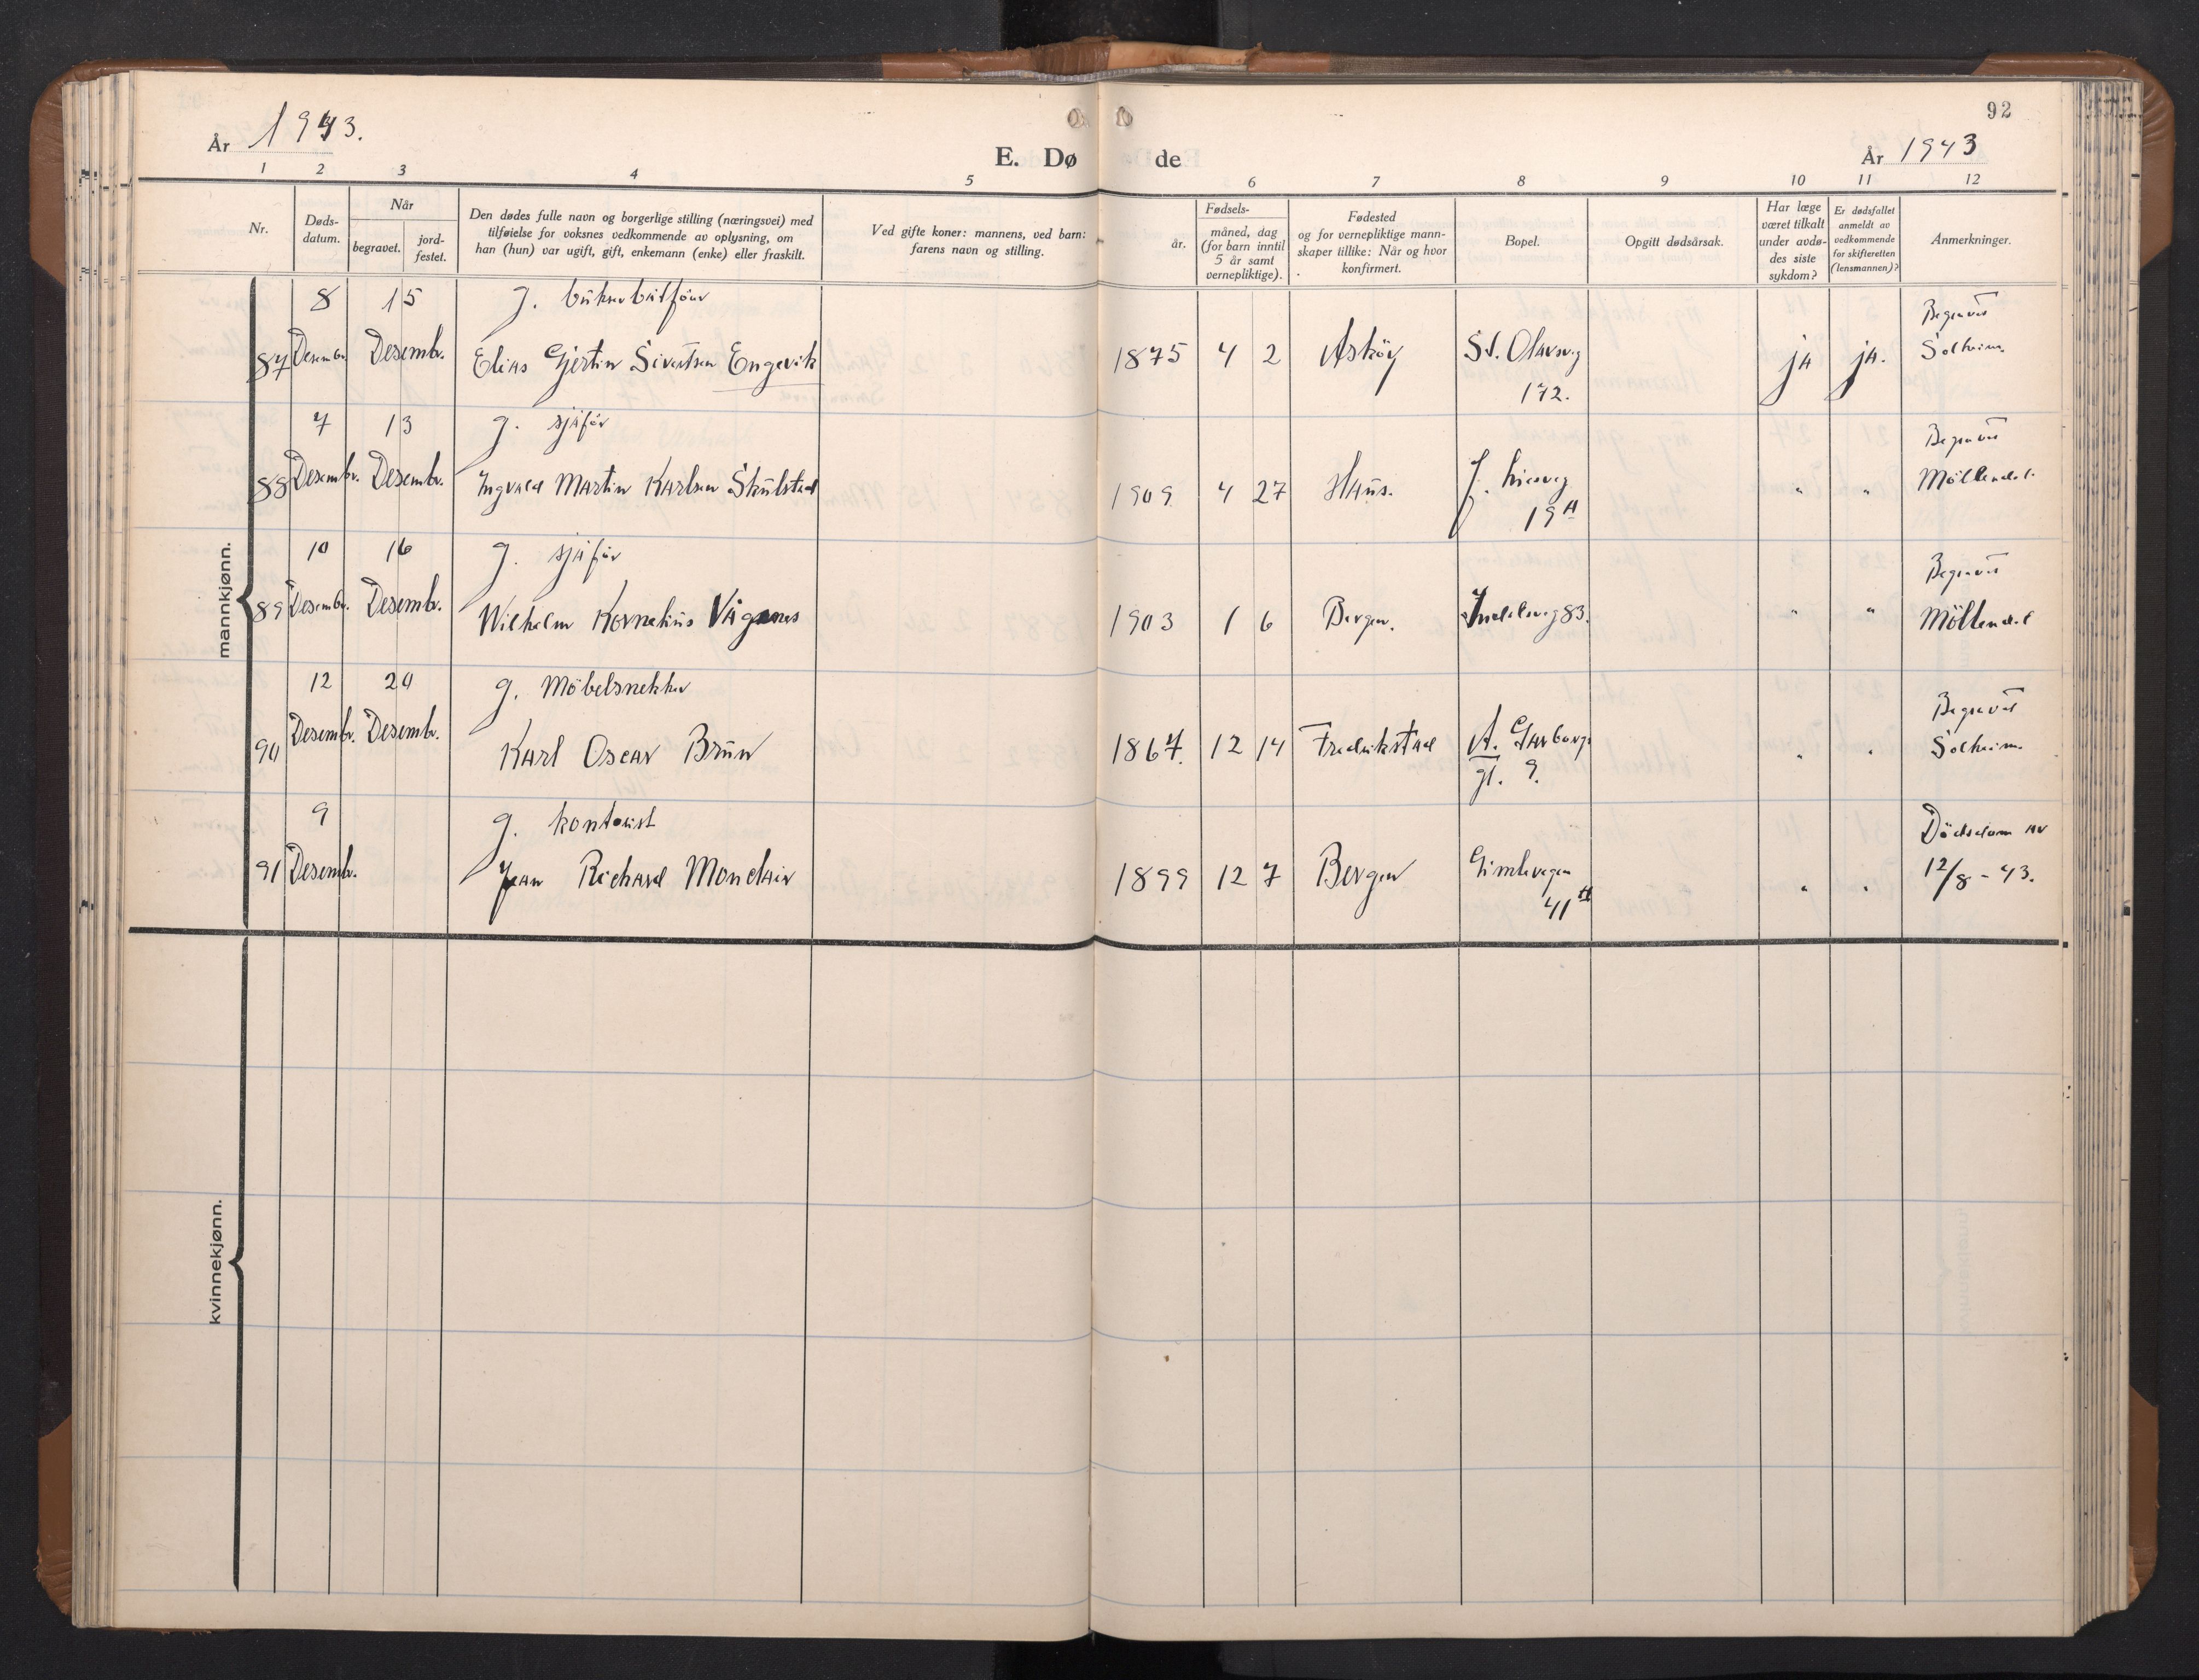 92
År 1943.
E. Dø de
År 1943
1 2 3 4 5 6 7 8 9 10 11 12
Nr.
Døds-
datum.
Når
begravet.
jord-
festet.
Den dødes fulle navn og borgerlige stilling (næringsvei) med
tilføielse for voksnes vedkommende av oplysning, om
han (hun) var ugift, gift, enkemann (enke) eller fraskilt.
Ved gifte koner: mannens, ved barn:
farens navn og stilling.
Fødsels-
år.
måned, dag
(for barn inntil
5 år samt
vernepliktige).
Fødested
og for vernepliktige mann-
skaper tillike: Når og hvor
konfirmert.
Bopel.
Opgitt dødsårsak.
Har læge
været tilkalt
under avdø-
des siste
sykdom?
Er dødsfallet
anmeldt av
vedkommende
for skifteretten
(lensmannen)?
Anmerkninger.
mankjønn.
8 15 g. buksérbåtförer Begravet
87 Desembr. Desembr. Elias Gjertin Sivertsen Engevik 1875 4 2 Asköy St. Olavsvg ja ja. Solheim.
172.
7 13 g. sjåför Begravet
88 Desembr. Desembr. Ingvald Martin Karlsen Skulstad 1909 4 27 Haus. J. Liesveg " " Möllendal.
19A
10 16 g. sjåför Begravet
89 Desembr. Desembr. Wilhelm Kornelius Vågenes 1903 1 6 Bergen. 83. " " Möllendal
12 20 g. Möbelsnekker Begravet
90 Desembr. Desembr. Karl Oscar Brun 1867. 12 14 Fredrikstad A. Garborgs " " Solheim.
gt. 9.
9 g. kontorist Dödsdom av
91 Desembr. Jean Richard Monclair 1899 12 7 Bergen Gimlevegen " " 12/8 - 43.
41
kvinnekjønn.